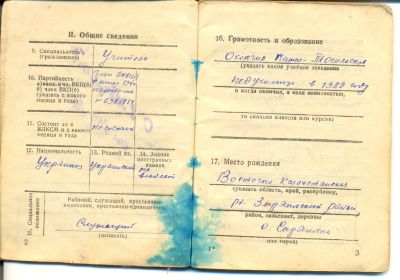 II. Общие сведения
9. Специальность
(гражданская)
Учитель
10. Партийность
б) член ВКП(б)
(указать с какого
месяца и года)
11. Состоит ли в
ВЛКСМ и с какого
месяца и года
не состоит
12. Национальность
Украинец
13. Родной яз.
украинский
14. Знание
иностранных
языков
не
владеет
15. Социальное
положение
Рабочий, служащий, крестьянин-
колхозник, крестьянин-единоличник
Служащий
(вписать)
2
16. Грамотность и образование
Окончил
(указать какое учебное заведение
педучилище в 1939 году
и когда окончил, а если неполностью,
то сколько классов или курсов)
17. Место рождения
Восточно Казахстанская
(указать область, край, республику,
район
район, сельсовет, деревню
или город)
3